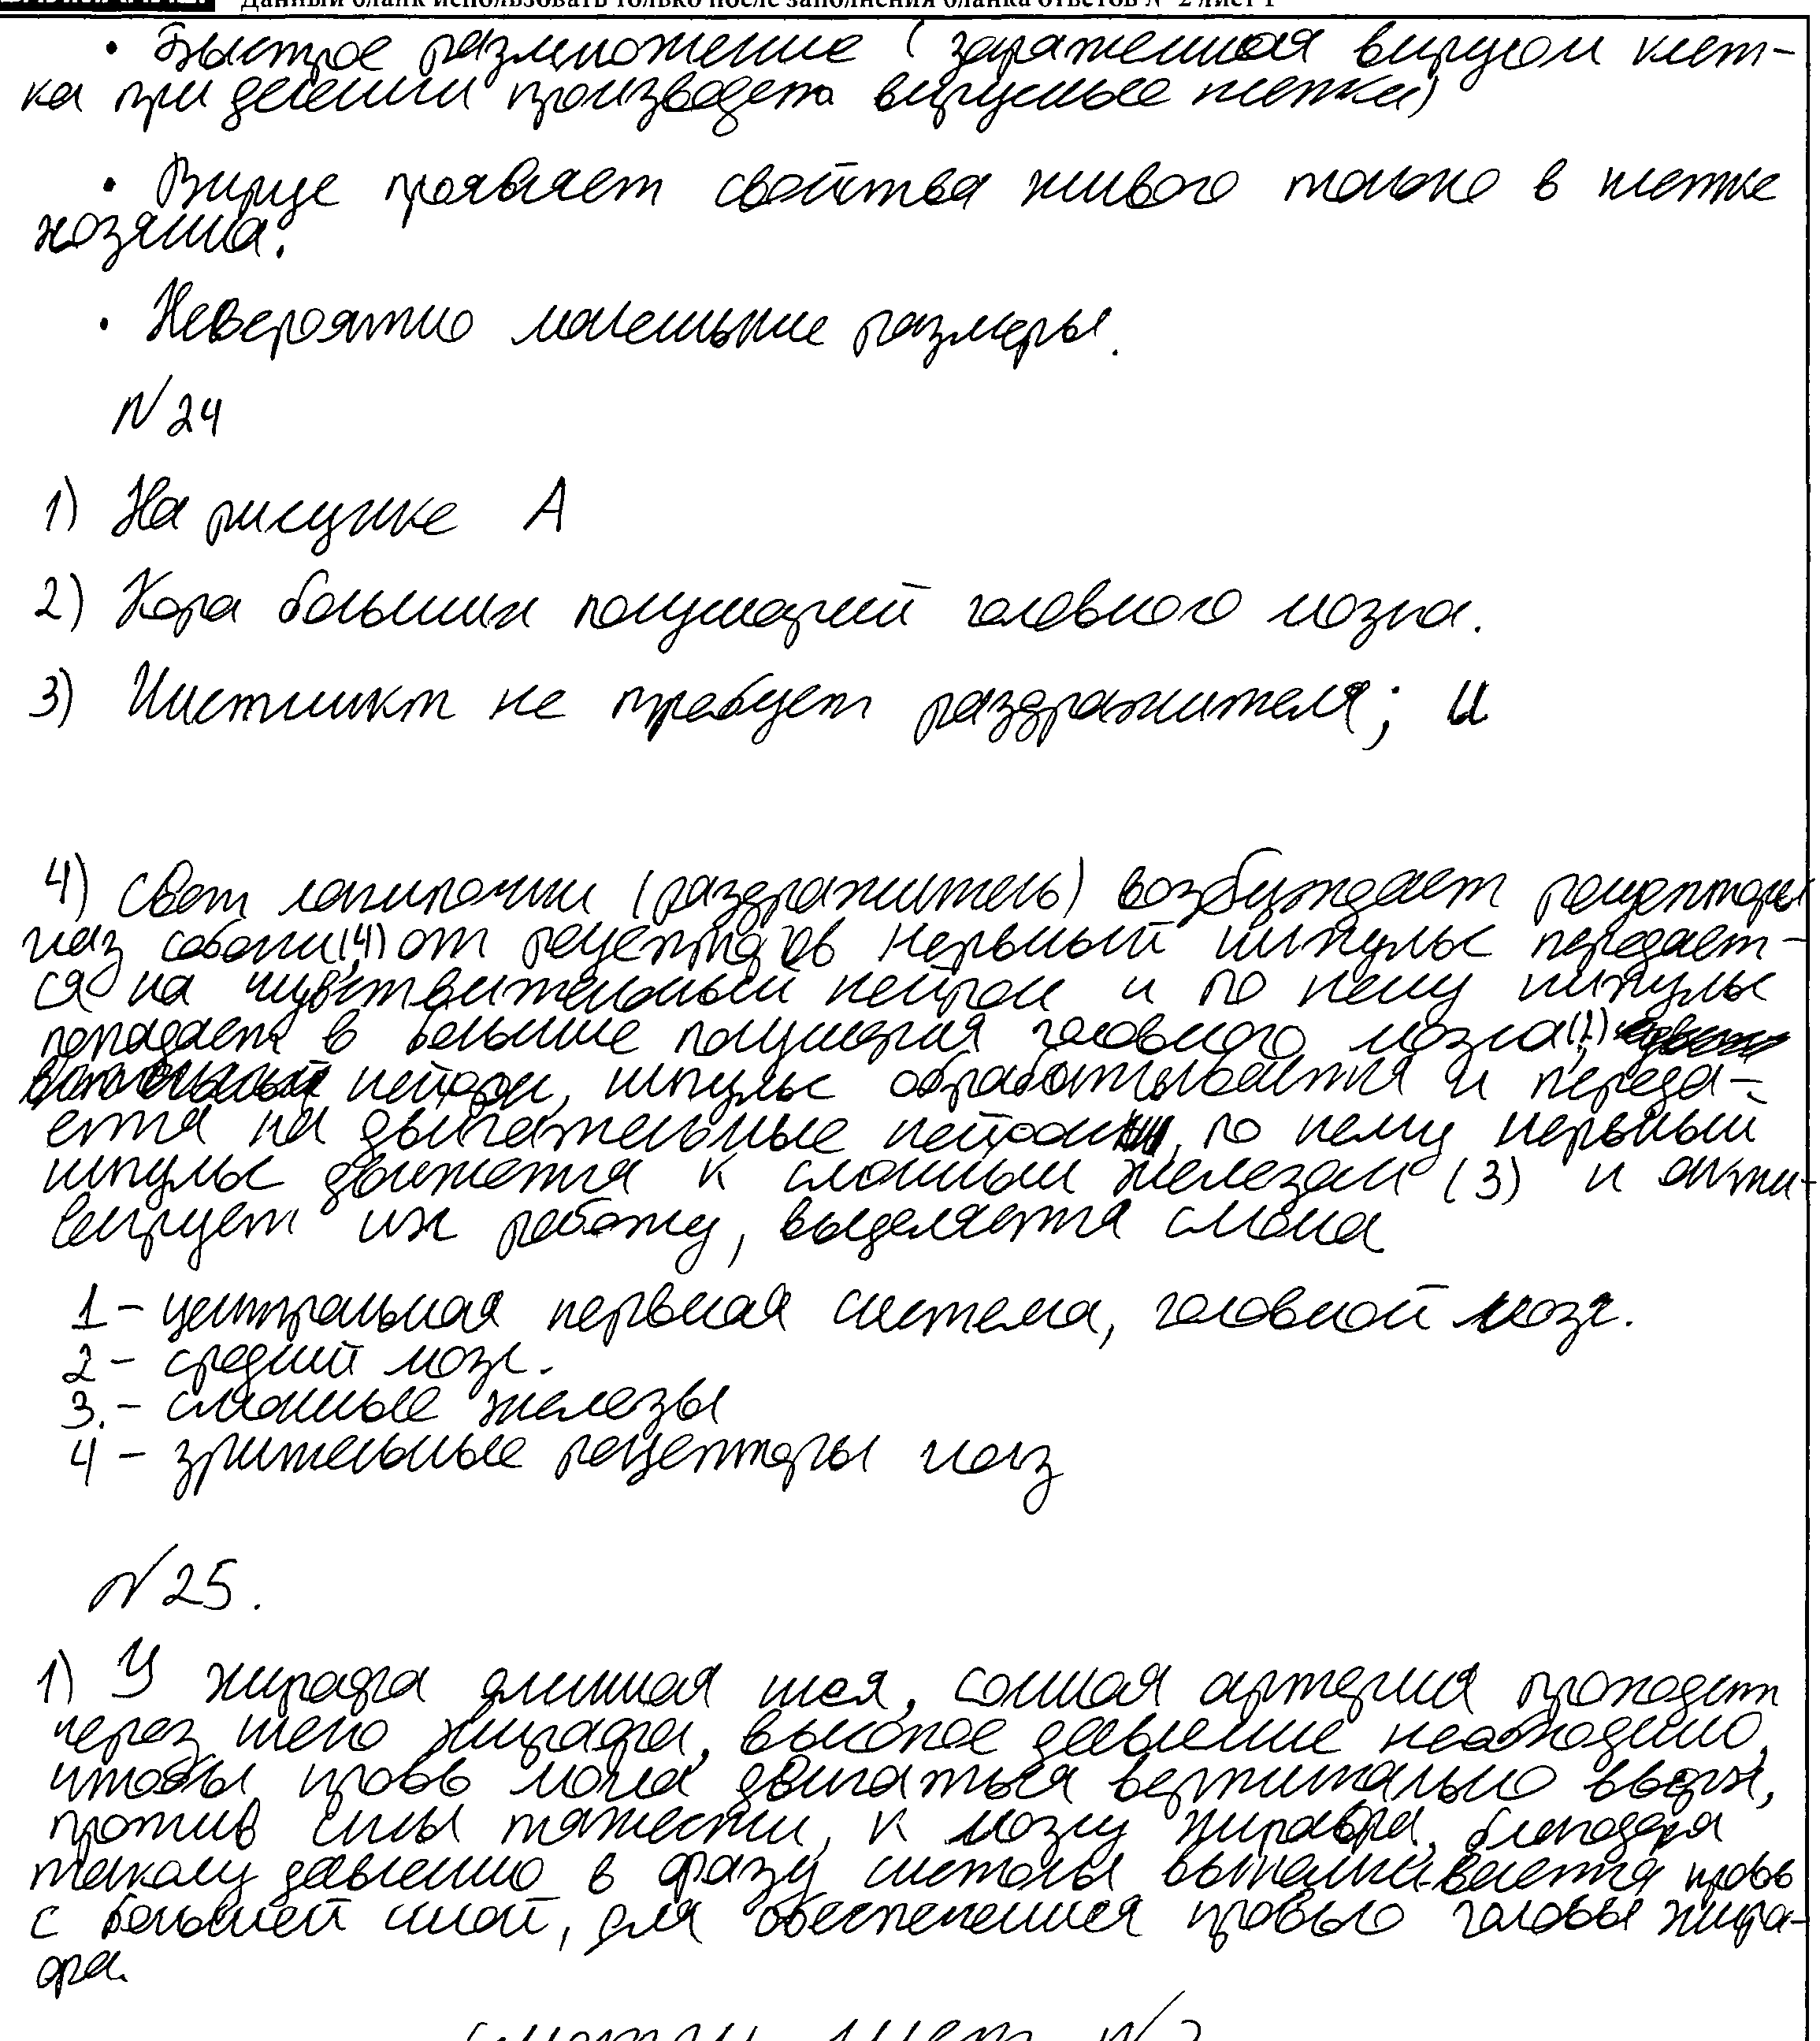 Данный бланк использовать только после заполнения бланка ответов № 2 лист 1
• Быстрое размножение (зараженная вирусом клет-
ка при делении производит вирусные клетки)
• Вирус проявляет свойства живого только в клетке
хозяина.
• Невероятно маленькие размеры.
N 24
1) На рисунке А
2) Кора больших полушарий головного мозга.
3) Инстинкт не требует раздражителя; и
4) Свет лампочки (раздражитель) возбуждает рецепторы
глаз собаки(4), от рецепторов нервный импульс передает-
ся на чувствительный нейрон и по нему импульс
попадает в большие полушария головного мозга
нейрон, импульс обрабатывается и переда-
ется на двигательные нейрон, по нему нервный
импульс движется к слюнным железам (3) и акти-
вирует их работу, выделяется слюна
1 – центральная нервная система, головной мозг.
2 – средний мозг.
3. – слюнные железы
4 – зрительные рецепторы глаз
N 25.
1) У жирафа длинная шея, сонная артерия проходит
через шею жирафа, высокое давление необходимо,
чтобы кровь могла двигаться вертикально вверх,
против силы тяжести, к мозгу жирафа, благодаря
такому давлению в фазу систолы выталкивается кровь
с большей силой, для обеспечения кровью головы жира-
фа.